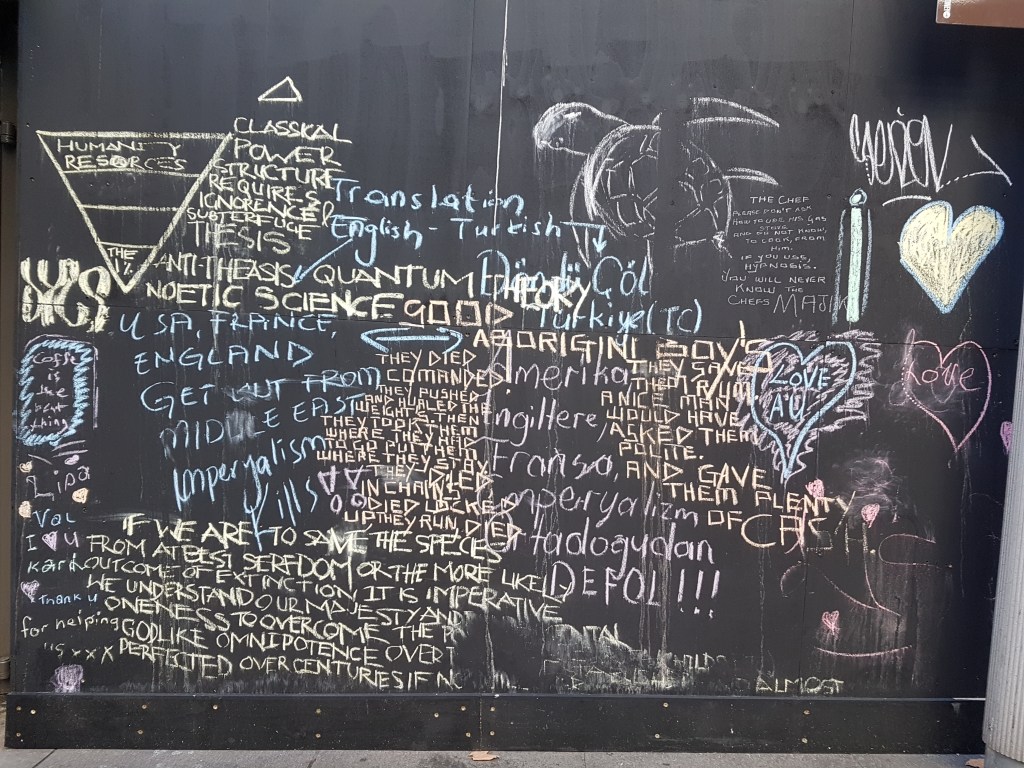 HUMANITY
RESORCES
THE
1%
CLASSICAL
POWER
STRUCTURE
REQUIRES
IGNORENCE &
SUBTERFUGE
THESIS
ANTI-THEASIS QUANTUM THEORY
NOETIC SCIENCE GOOD
Translation
English - Turkish
Türkiye (TC)
USA, FRANCE,
ENGLAND
GET OUT FROM
MIDDLE EAST
Imperyalism
Kills
Amerika
Ingiltere,
Fransa,
Emperyalizm
Ortadogudan
DEFOL!!!
THEY DIED
COMANDED
THEY PUSHED
AND HAULED THE
WEIGHT
THEY TOOK THEM
WHERE THEY HAD
TIED PUT THEM
WHERE THEY STAY
THEY
IN CHAIN LED
DIED LOCKED
UP THEY RUN, DIED
ABORIGINL BOY'S
THEY GAVE
THEM RUM
A NICE MAN
WOULD HAVE
ACKED THEM
POLITE.
AND GAVE
THEM PLENTY
OF
THE CHEF
PLEASE DON'T ASK
HOW TO USE HIS GAS
STOVE
AND DO NOT KNOW,
TO COOK, FROM
HIM.
IF YOU USE,
HYPNOSIS.
YOU WILL NEVER
KNOW THE
CHEFS MAJIK
LOVE
AU
Love
Coffee
is
the
best
thing
Lipa
Val
I U
Thank u
for helping
us xxx
IF WE ARE TO SAVE THE SPECIES
FROM AT BEST SERFDOM OR THE MORE LIKELY
OUTCOME OF EXTINCTION, IT IS IMPERATIVE
WE UNDERSTAND OUR MAJESTY AND
ONENESS TO OVERCOME THE
GODLIKE OMNIPOTENCE OVER
PERFECTED OVER CENTURIES IF
ALMOST